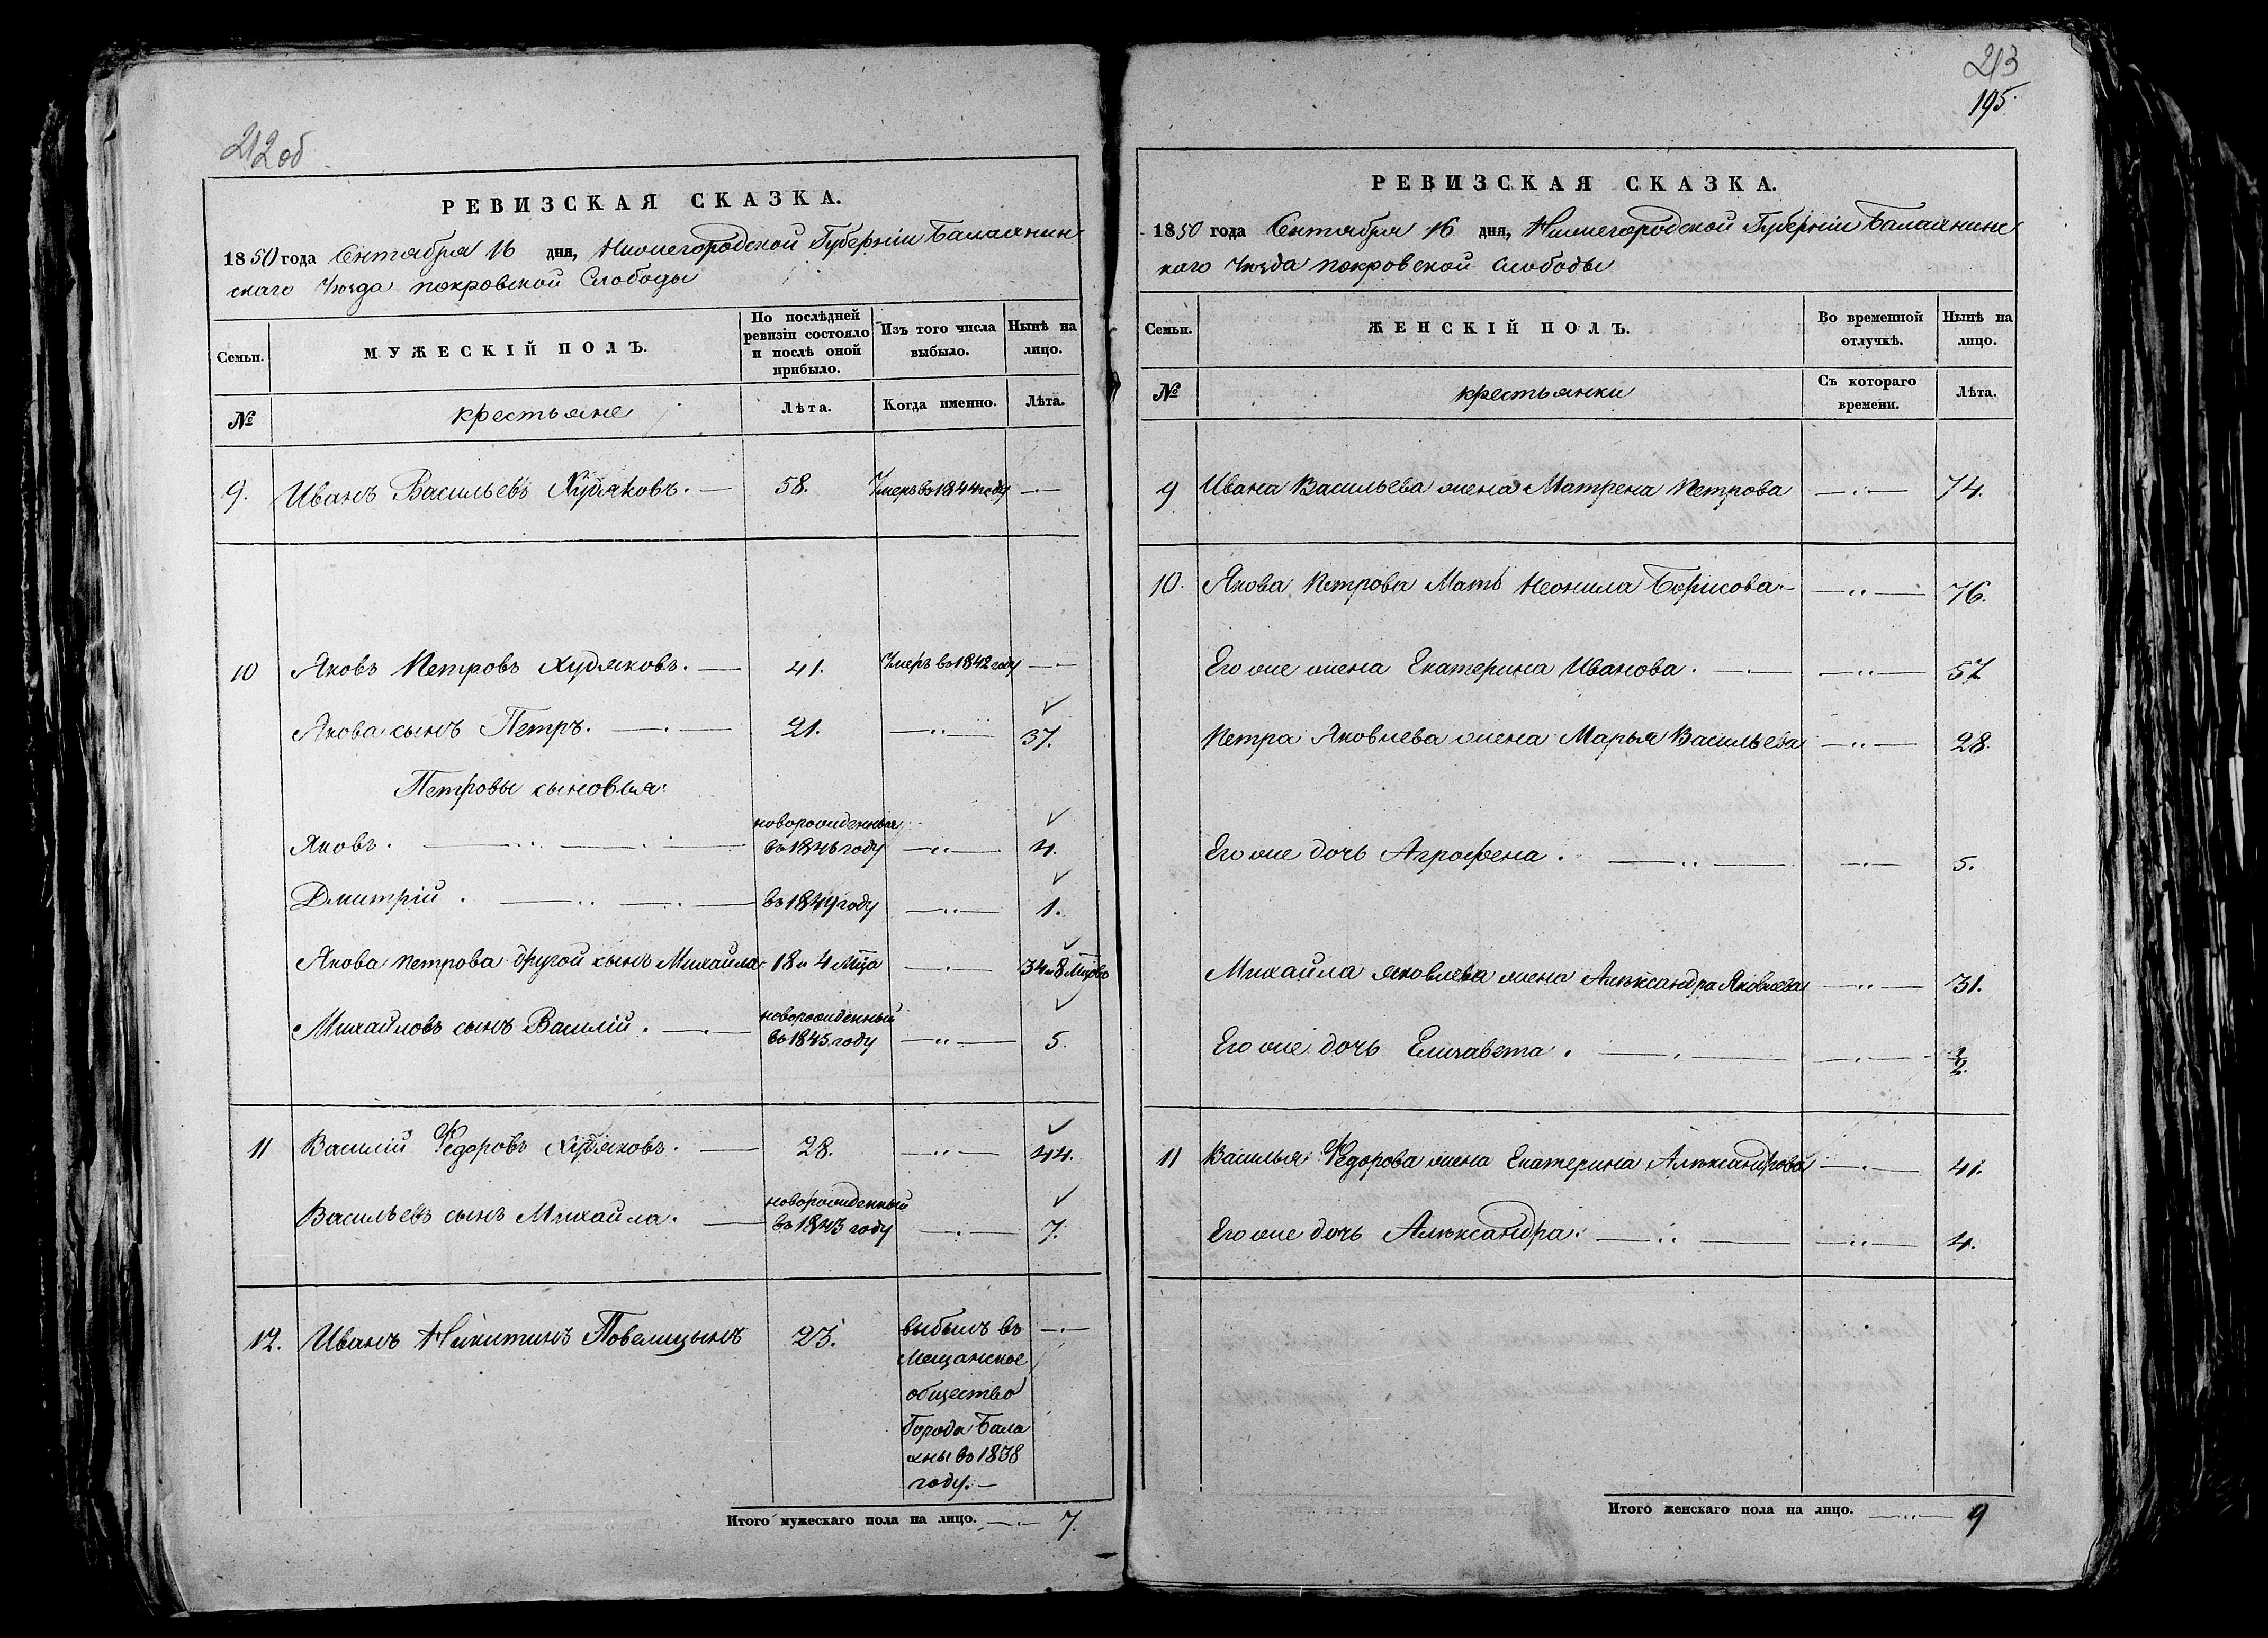 212 об
РЕВИЗСКАЯ СКАЗКА.
1850 года Сентября 16 дня, Нижегородской Губерніи Балахнин
скаго Уезда покровской Слободы
Семьи.
МУЖЕСКІЙ ПОЛЪ.
По послѣдней ревизіи состояло и послѣ оной прибыло.
Изъ того числа выбыло.
Нынѣ на лицо.
№
крестьяне
Лѣта.
Когда именно.
Лѣта.
9. Иванъ Васильевъ Худяковъ. — 58. Умеръ во 1844 году —·—
10 Яковъ Петровъ Худяковъ. — 41. Умеръ во 1842 году —·—
Якова сынъ Петръ. — 21. —··— 37.
Петровы сыновья:
Яковъ. новорожденныя во 1846 году —··— 4.
Дмитрій. во 1849 году —··— 1.
Якова петрова другой сынъ Михайла 18 и 4 Мца —·— 34 и 8 Мцовъ
Михайловъ сынъ Василій. новорожденный во 1845 году —··— 5.
11 Василій Федоровъ Худяковъ. — 28. —··— 44.
Васильевъ сынъ Михайла. — новорожденный во 1843 году —·— 7.
12. Иванъ Никитинъ Повелицынъ 23. выбылъ въ —·—
Мещанское
общество
Города Бала
хны во 1838
году.—
Итого мужескаго пола на лицо. —·— 7.
213
195.
РЕВИЗСКАЯ СКАЗКА.
1850 года Сентября 16 дня, Нижегородской Губерніи Балахнинс
каго Уезда покровской Слободы
Семьи.
ЖЕНСКІЙ ПОЛЪ.
Во временной отлучкѣ.
Нынѣ на лицо.
№
крестьянки
Съ котораго времени.
Лѣта.
9 Ивана Васильева жена Матрена Петрова —··— 74.
10. Якова Петрова Мать Неонила Борисова — —··— 76.
Его же жена Екатерина Иванова. —·— —··— 57
Петра Яковлева жена Марья Васильева —··— 28.
Его же дочь Агрофена. —··— —·— 5.
Михайла яковлева жена Алѣксандра Яковлева —··— 31.
Его же дочь Елизавета. —·— —·— ½
11 Василья Федорова жена Екатерина Алѣксандрова —·— 41.
Его же дочь Алѣксандра. —··— —··— 4.
Итого женскаго пола на лицо. —··— 9